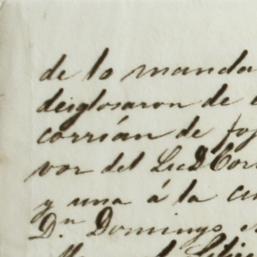 de lo manda
deiglosaron de
corrián de foj
vor del Lic D Cor
y una á la
Dn Domingo